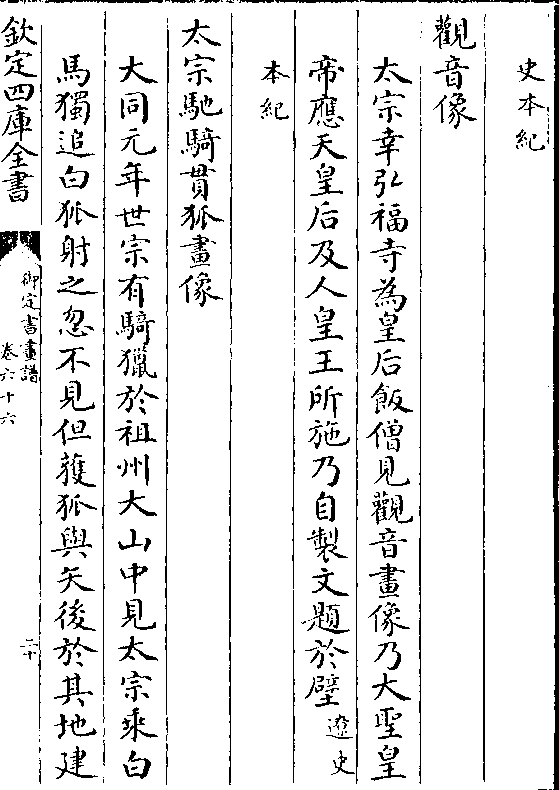 史本紀
觀音像
太宗幸弘福寺為皇后飯僧見觀音畫像乃大聖皇
帝應天皇后及人皇王所施乃自製文題於壁遼史
本紀
太宗馳騎貫狐畫像
大同元年世宗有騎獵於祖州大山中見太宗乘白
馬獨追白狐射之忽不見但獲狐與矢後於其地建
欽定四庫全書
御定書畫譜
卷六十六
二十